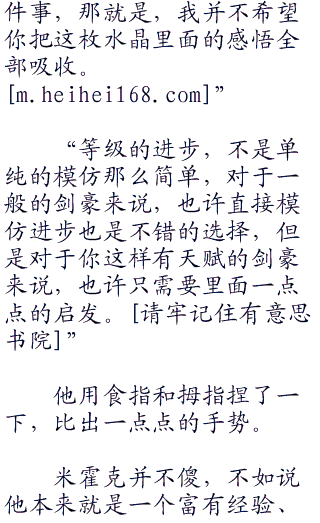 件事，那就是，我并不希望
你把这枚水晶里面的感悟全
部吸收。
[m.heihei168.com]”
“等级的进步，不是单
纯的模仿那么简单，对于一
般的剑豪来说，也许直接模
仿进步也是不错的选择，但
是对于你这样有天赋的剑豪
来说，也许只需要里面一点
点的启发。[请牢记住有意思
书院]”
他用食指和拇指捏了一
下，比出一点点的手势。
米霍克并不傻，不如说
他本来就是一个富有经验、